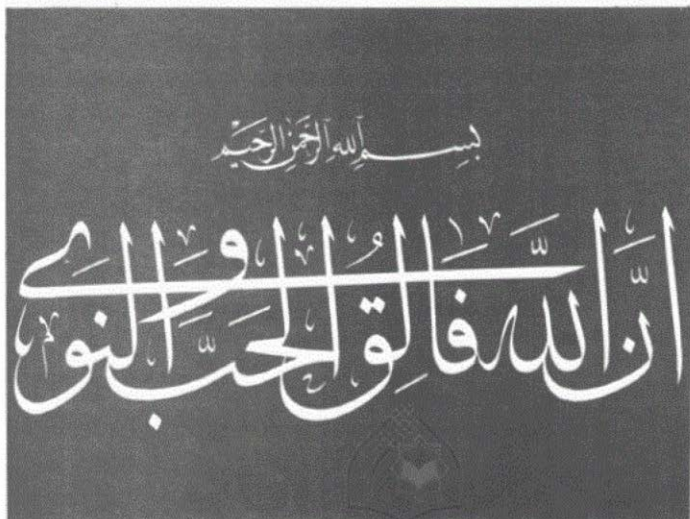 بِسْمِ اللهِ الرَّحْمٰنِ الرَّحِيْمِ
انَّ اللهَ فَالِقُ الْحَبِّ وَالنَّوَى